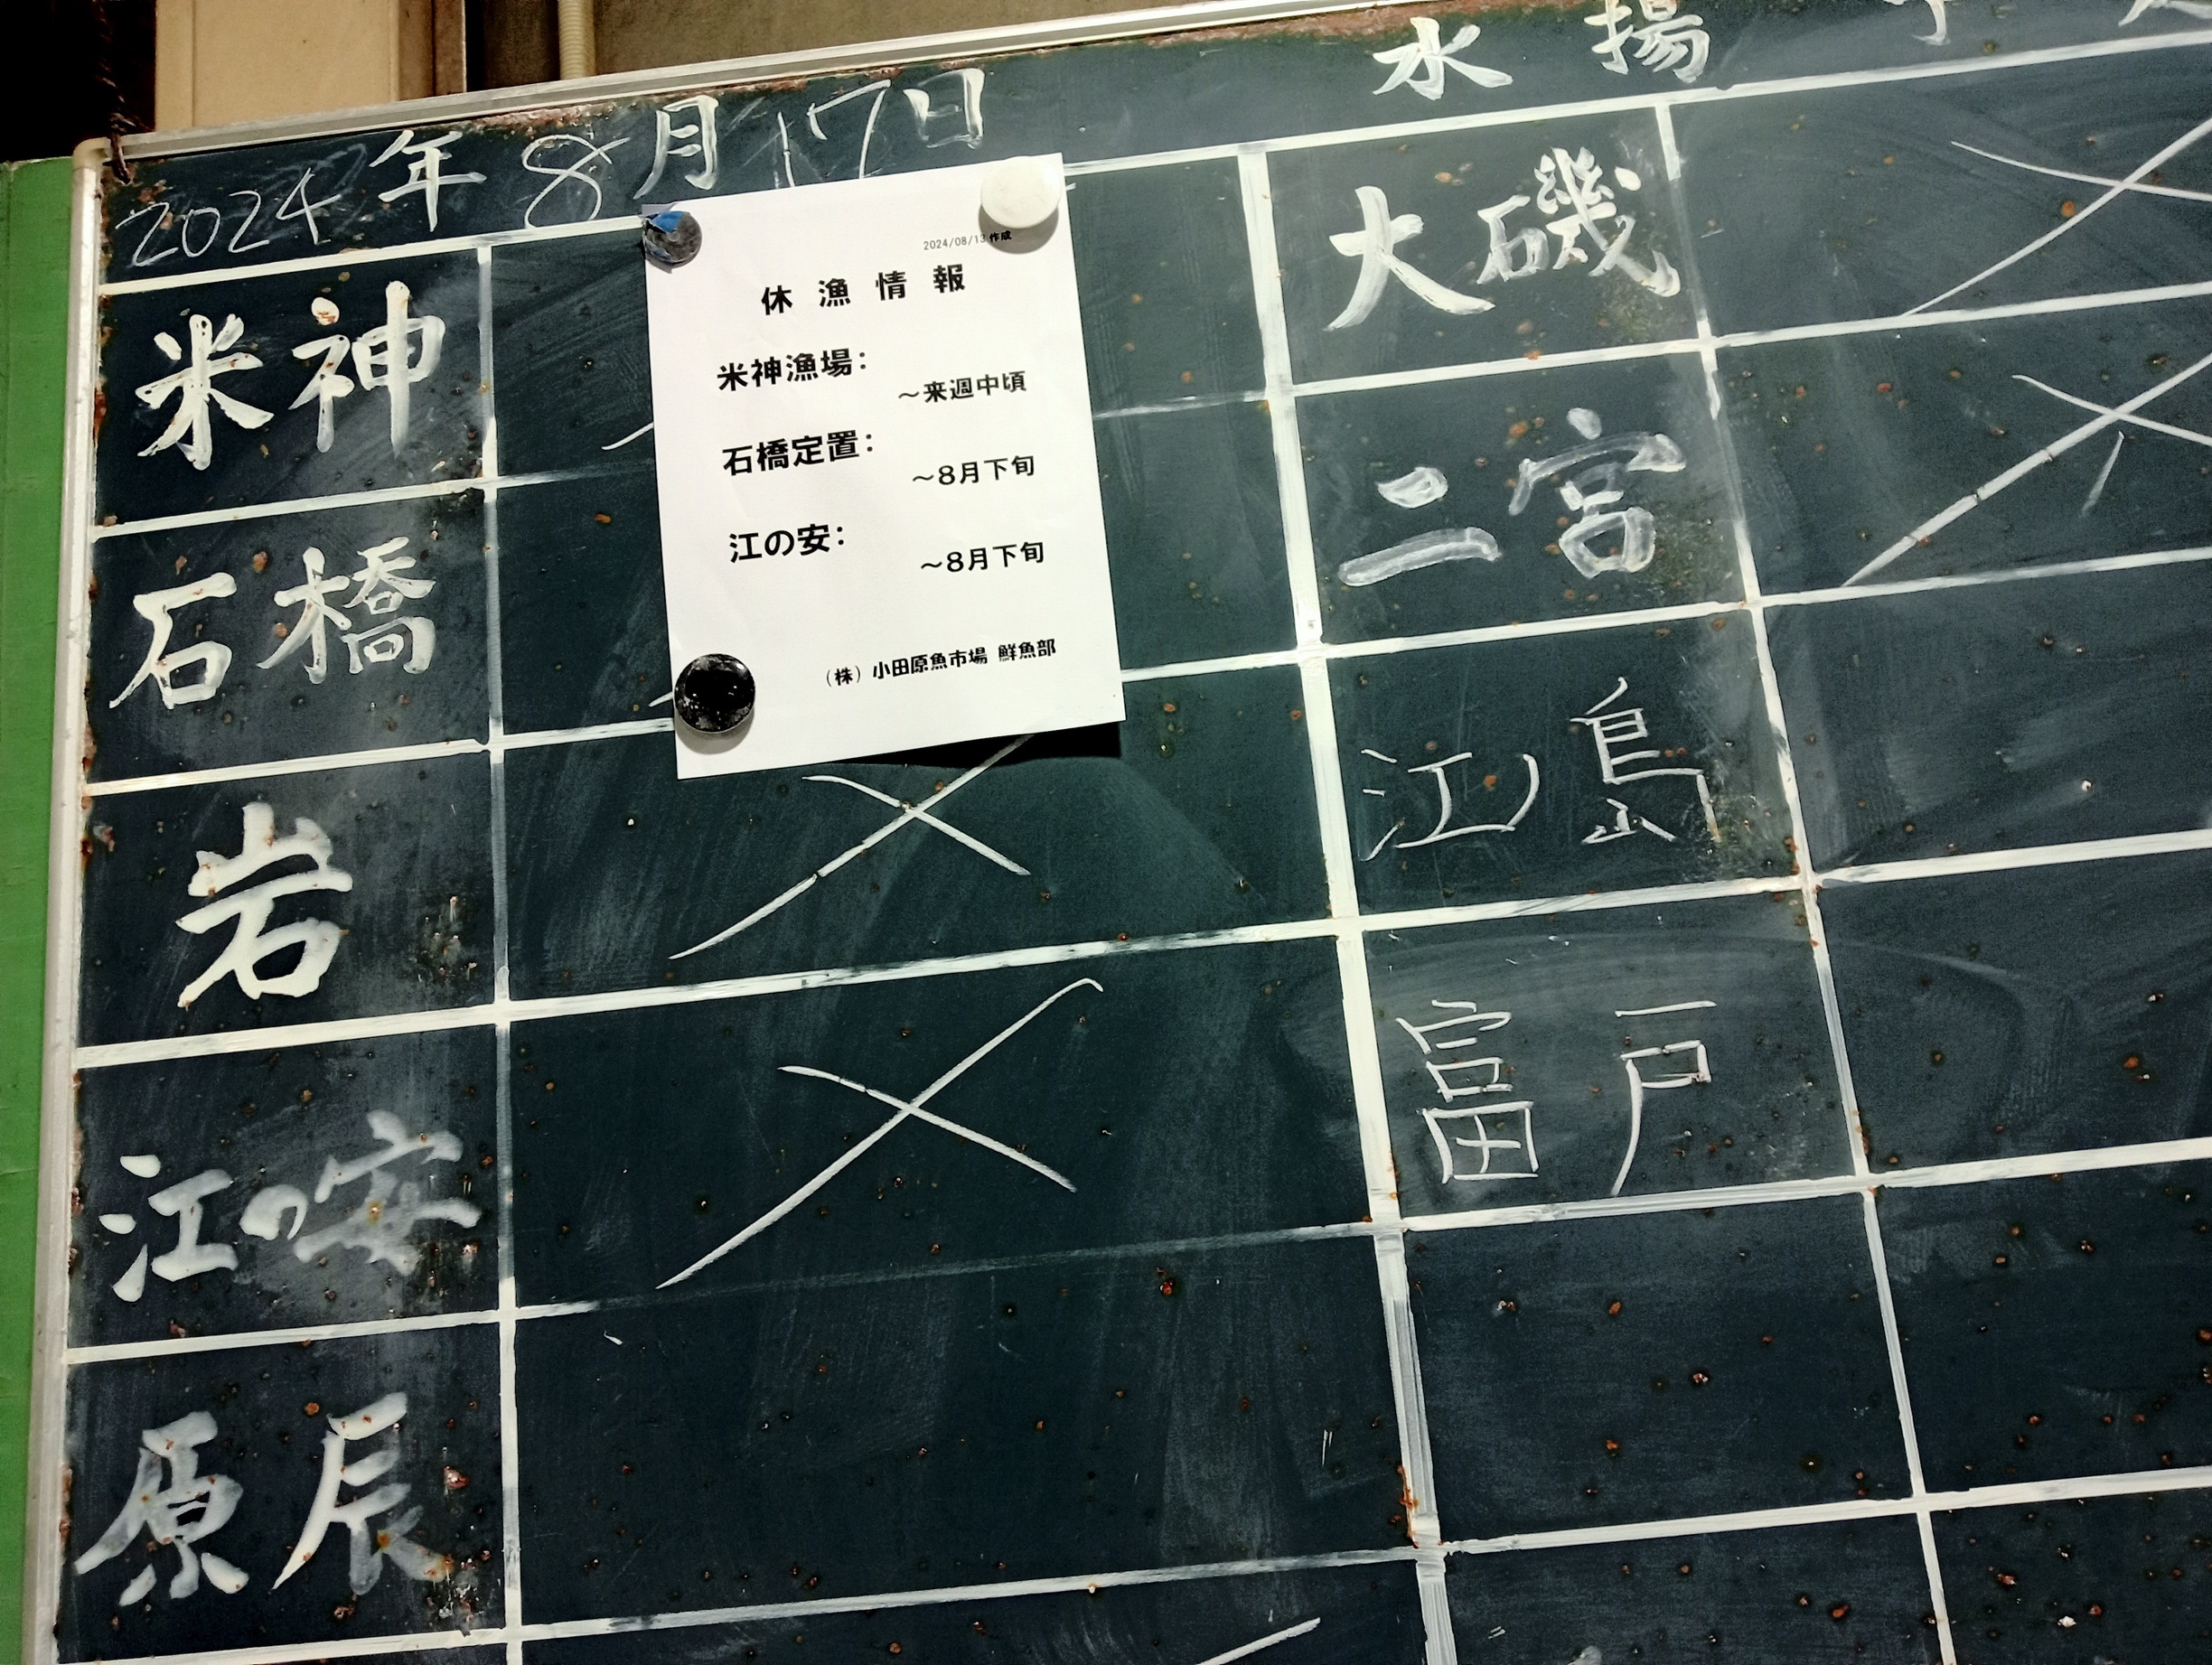 2024年8月17日
水揚予
米神
石橋
岩
江の安
原辰
2024/08/13 作成
休漁情報
米神漁場：
～来週中頃
石橋定置：
～8月下旬
江の安：
～8月下旬
（株）小田原魚市場 鮮魚部
大磯
二宮
江ノ島
富戸